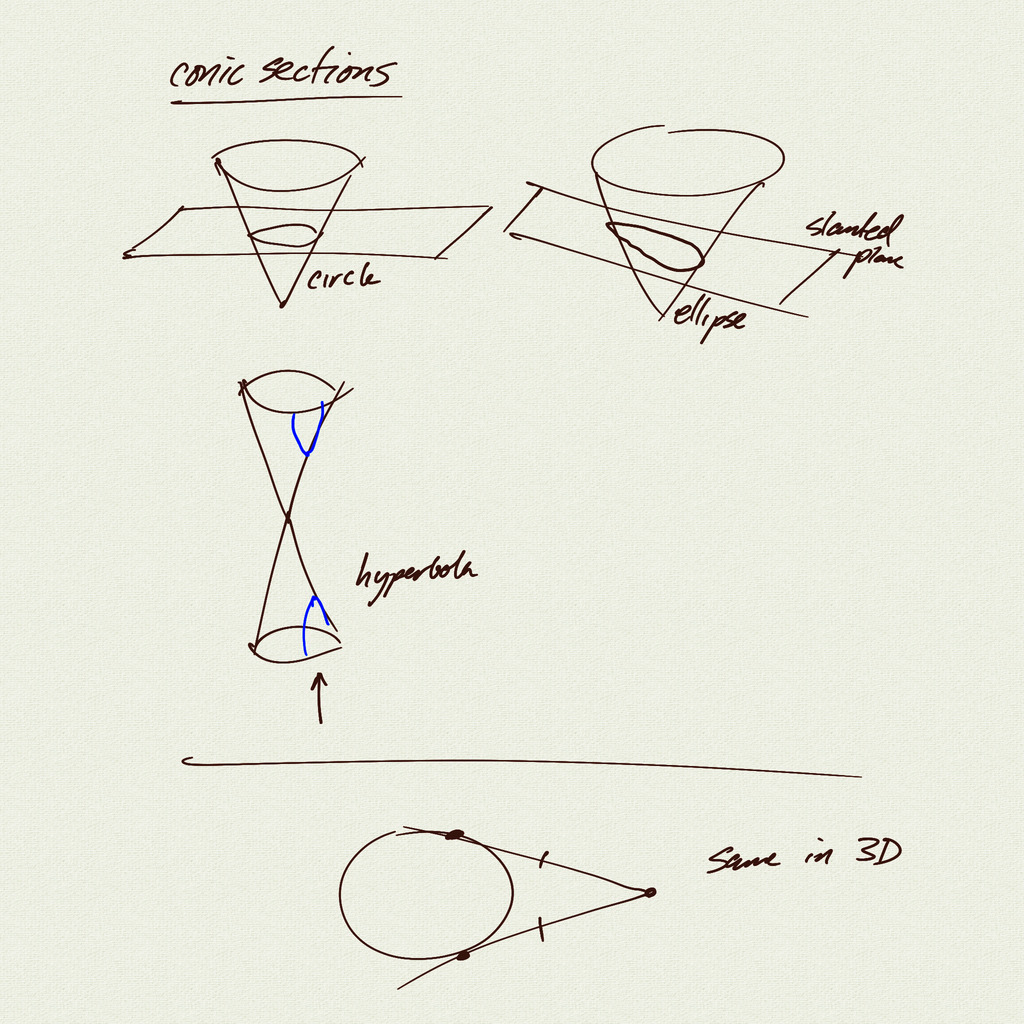 conic sections
circle
slanted
plane
ellipse
hyperbola
same in 3D